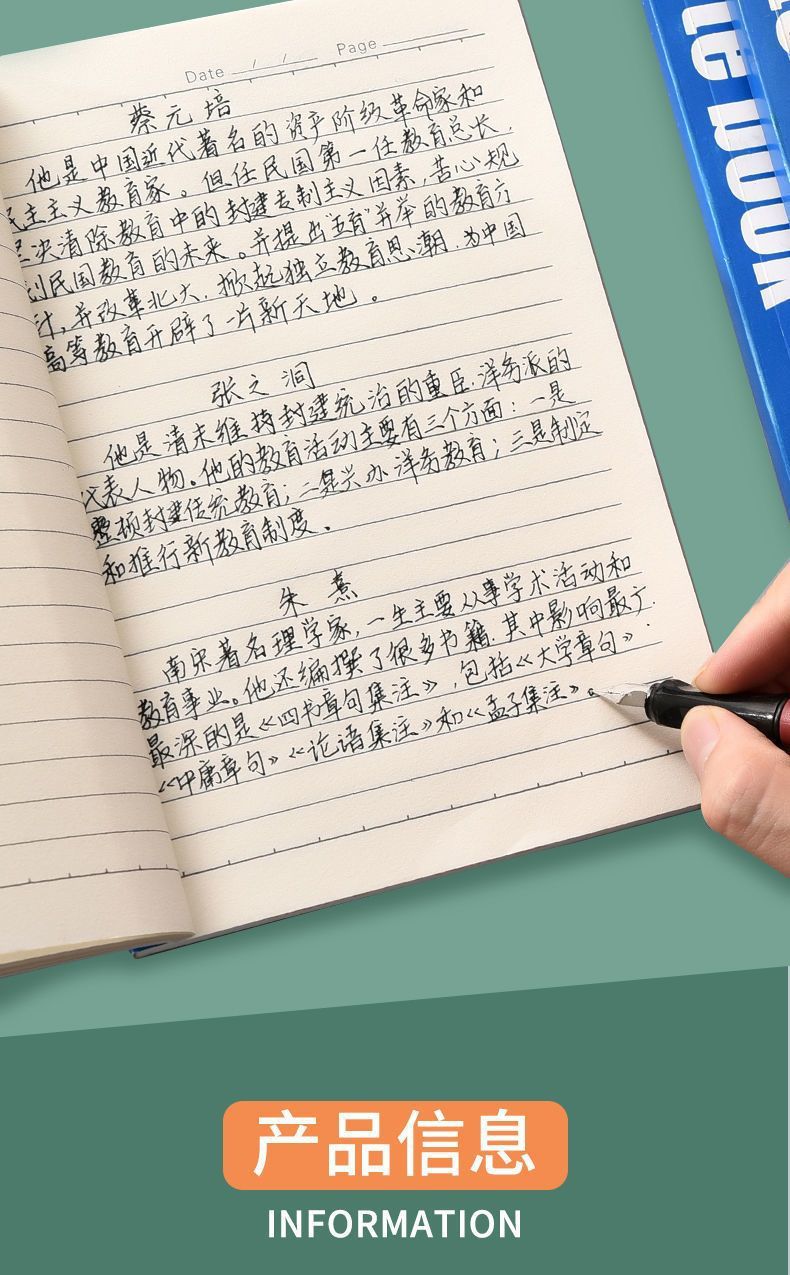 Date / / Page
蔡元培
他是中国近代著名的资产阶级革命家和
民主主义教育家。但任民国第一任教育总长,
坚决清除教育中的封建专制主义因素,苦心规
划民国教育的未来。并提出"五育"并举的教育方
针,并改革北大,掀起独立教育思潮,为中国
高等教育开辟了一片新天地。
张之洞
他是清末维持封建统治的重臣,洋务派的
代表人物。他的教育活动主要有三个方面:一是
整顿封建传统教育;二是兴办洋务教育;三是制定
和推行新教育制度。
朱熹
南宋著名理学家,一生主要从事学术活动和
教育事业。他还编撰了很多书籍,其中影响最广.
最深的是《四书章句集注》,包括《大学章句》.
《中庸章句》《论语集注》和《孟子集注》。
产品信息
INFORMATION